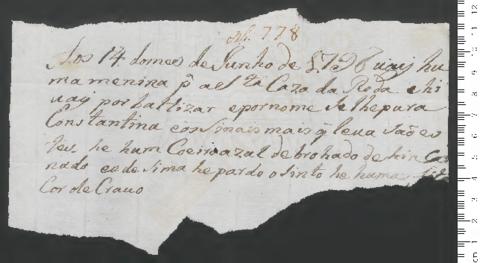 N. 778
Aos 14 domes de Junho de 1796 vay hu
ma menina pª a Sta Caza da Roda e hi
vay por batizar e por nome se lhe pora
Constantina e os sinais mais q leva são es
tes, he hum Coeiro azul debrohado de
nado e o de sima he pardo o sinto he huma
Cor de Cravo